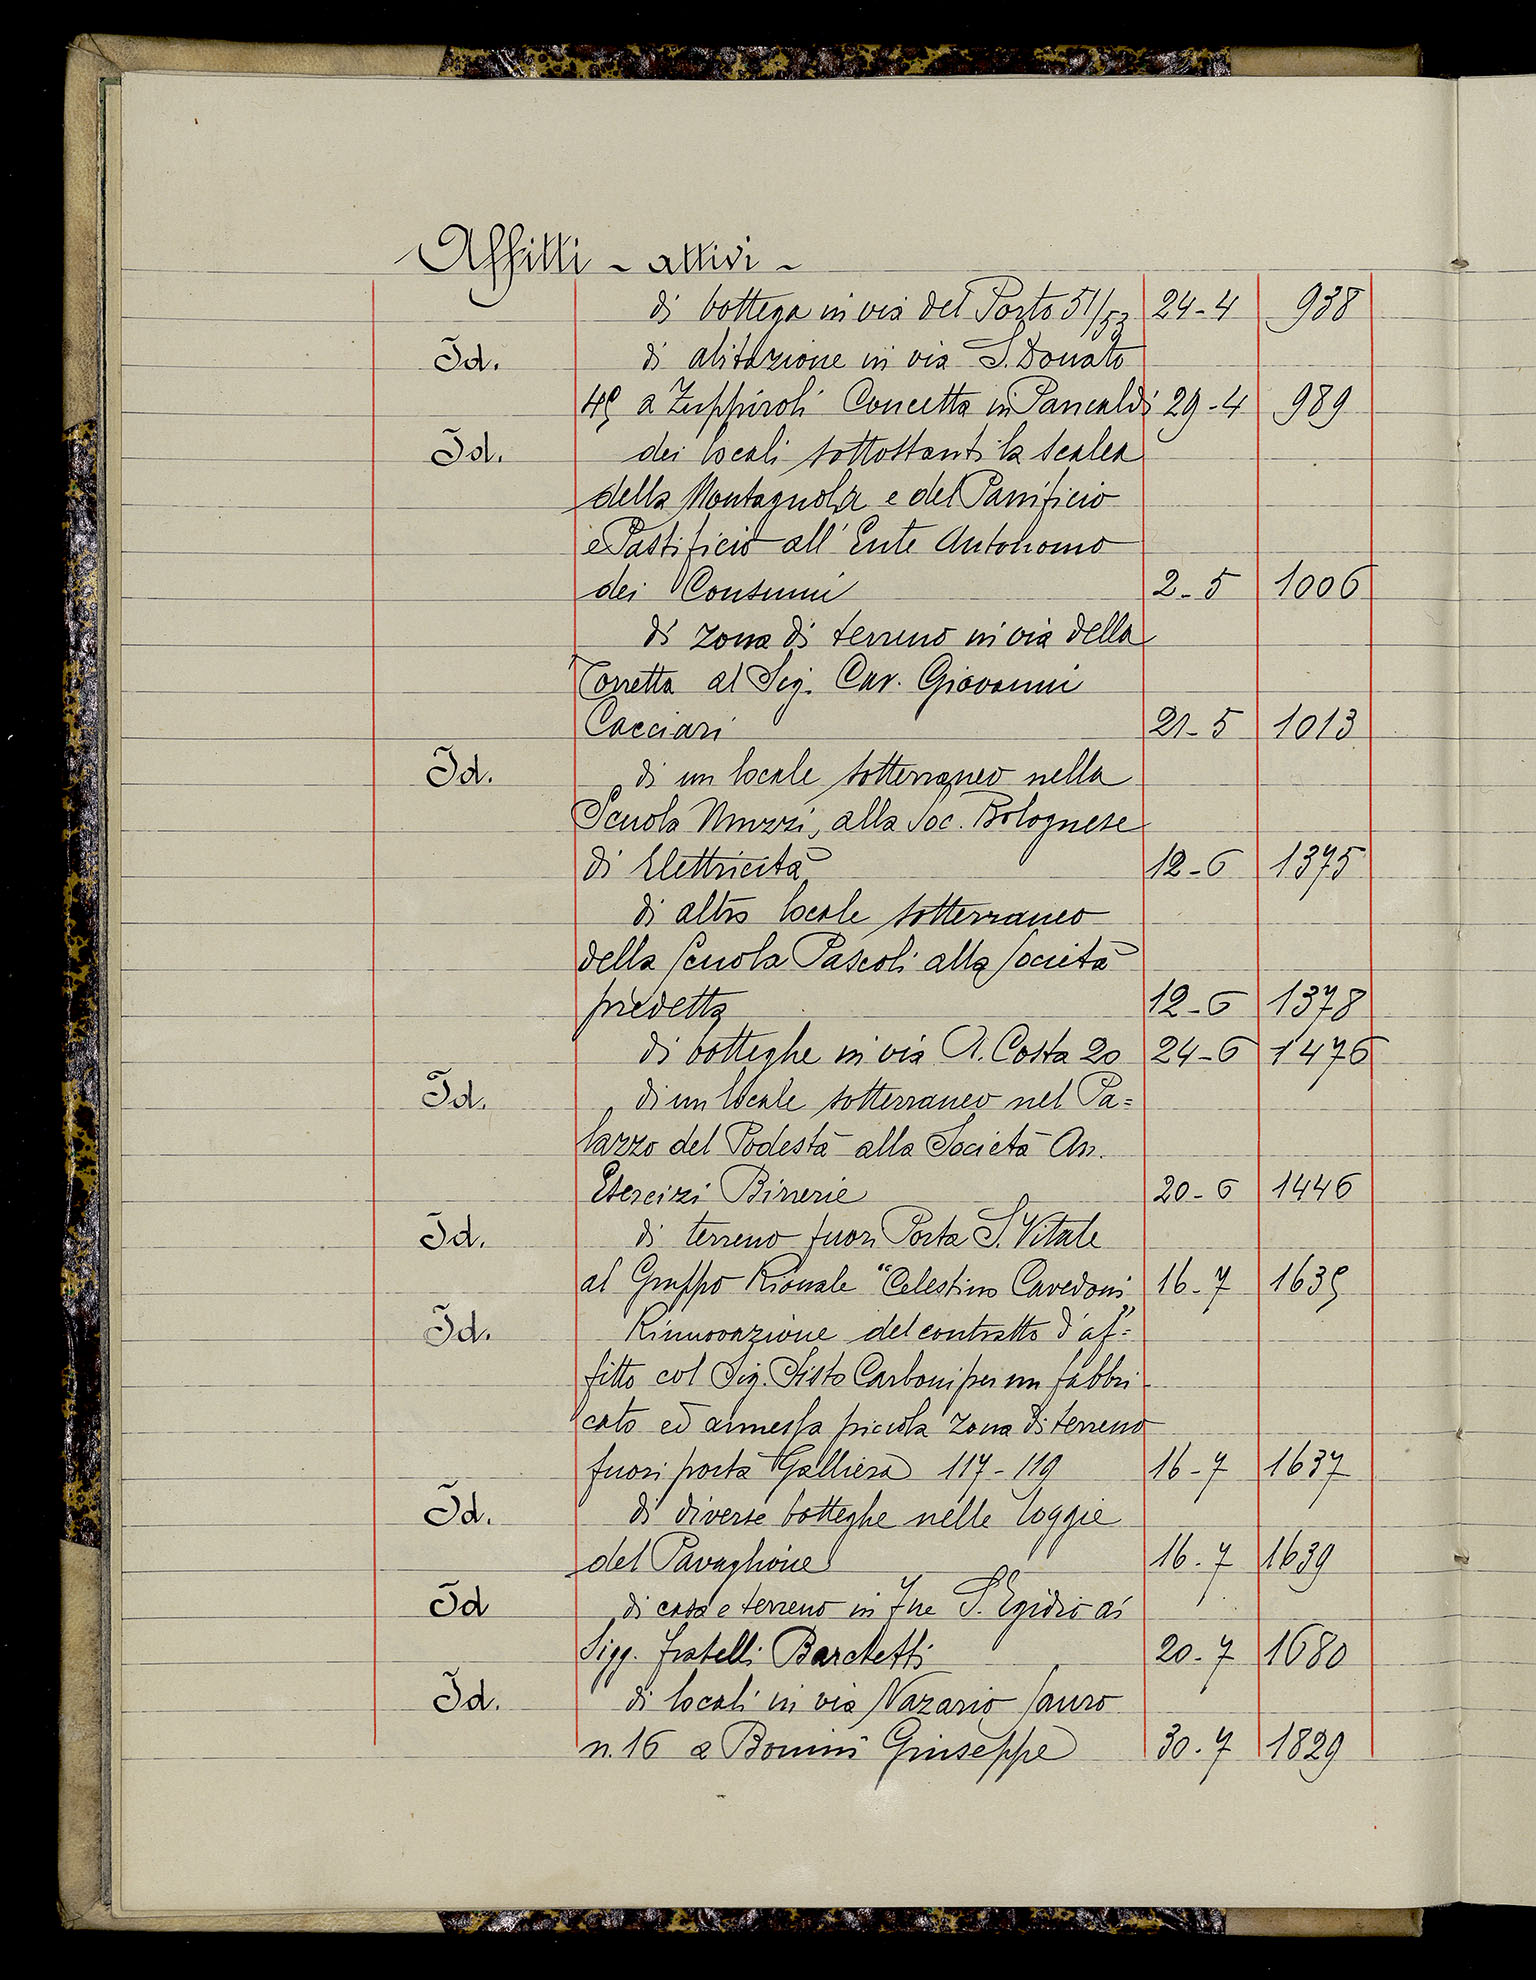 Affitti - attivi -
di bottega in via del Porto 51/53 24-4 938
Id. di abitazione in via S. Donato
49 a Zuppiroli Concetta in Pancaldi 29-4 989
Id. dei locali sottostanti la scalea
della Montagnola e del Panificio
e Pastificio all'Ente Autonomo
dei Consumi 2-5 1006
di zona di terreno in via della
Torretta al Sig. Cav. Giovanni
Cacciari 21-5 1013
Id. di un locale sotterraneo nella
Scuola Muzzi, alla Soc. Bolognese
di Elettricità 12-6 1375
di altro locale sotterraneo
della Scuola Pascoli alla Società
predetta 12-6 1378
di botteghe in via A. Costa 20 24-6 1476
Id. di un locale sotterraneo nel Pa=
lazzo del Podestà alla Società An.
Esercizi Birrerie 20-6 1446
Id. di terreno fuori Porta S. Vitale
al Gruppo Rionale "Celestino Cavedoni" 16-7 1635
Id. Rinnovazione del contratto d'af=
fitto col Sig. Sisto Carboni per un fabbri
cato ed annessa piccola zona di terreno
fuori porta Galliera 117-119 16-7 1637
Id. di diverse botteghe nelle loggie
del Pavaglione 16-7 1639
Id di casa e terreno in S. Egidio ai
Sigg. fratelli Barchetti 20-7 1680
Id. di locali in via Nazario Sauro
n. 16 a Bonini Giuseppe 30-7 1829